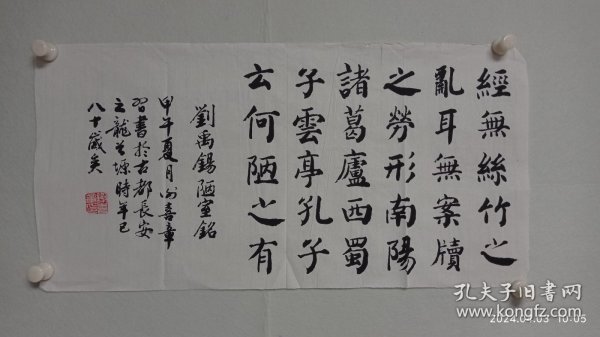 經無絲竹之
亂耳無案牘
之勞形南陽
諸葛廬西蜀
子雲亭孔子
云何陋之有
劉禹錫陋室銘
甲午夏月謝喜章
習書於古都長安
之龍首塬時年已
八十歲矣
孔夫子旧书网
www.kongfz.com
2024.01.03 10:05